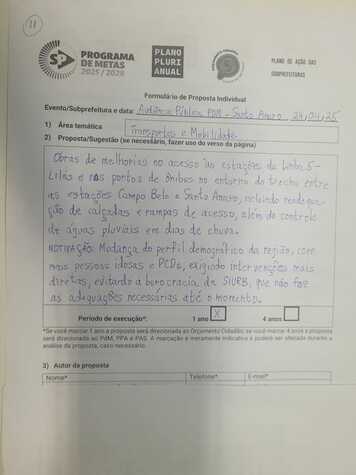 11
SP
PROGRAMA
DE METAS
2025 / 2028
PLANO
PLURI
ANUAL
PLANO DE AÇÃO DAS
SUBPREFEITURAS
Formulário de Proposta Individual
Evento/Subprefeitura e data: Audiência Pública PDM - Santo Amaro 24/04/25
1) Área temática
Transportes e Mobilidade
2) Proposta/Sugestão (se necessário, fazer uso do verso da página)
Obras de melhorias no acesso às estações da Linha 5-
Lilás e nos pontos de ônibus no entorno do trecho entre
as estações Campo Belo e Santo Amaro, incluindo readequa-
ção de calçadas e rampas de acesso, além do controle
de águas pluviais em dias de chuva.
MOTIVAÇÃO: Mudança do perfil demográfico da região, com
mais pessoas idosas e PCDs, exigindo intervenções mais
diretas, evitando a burocracia da SIURB, que não fez
as adequações necessárias até o momento.
Período de execução*: 1 ano X 4 anos
*Se você marcar 1 ano a proposta será direcionada ao Orçamento Cidadão; se você marcar 4 anos a proposta
será direcionada ao PdM, PPA e PAS. A marcação é meramente indicativa e poderá ser alterada durante a
análise da proposta, caso necessário.
3) Autor da proposta
Nome* Telefone* E-mail*